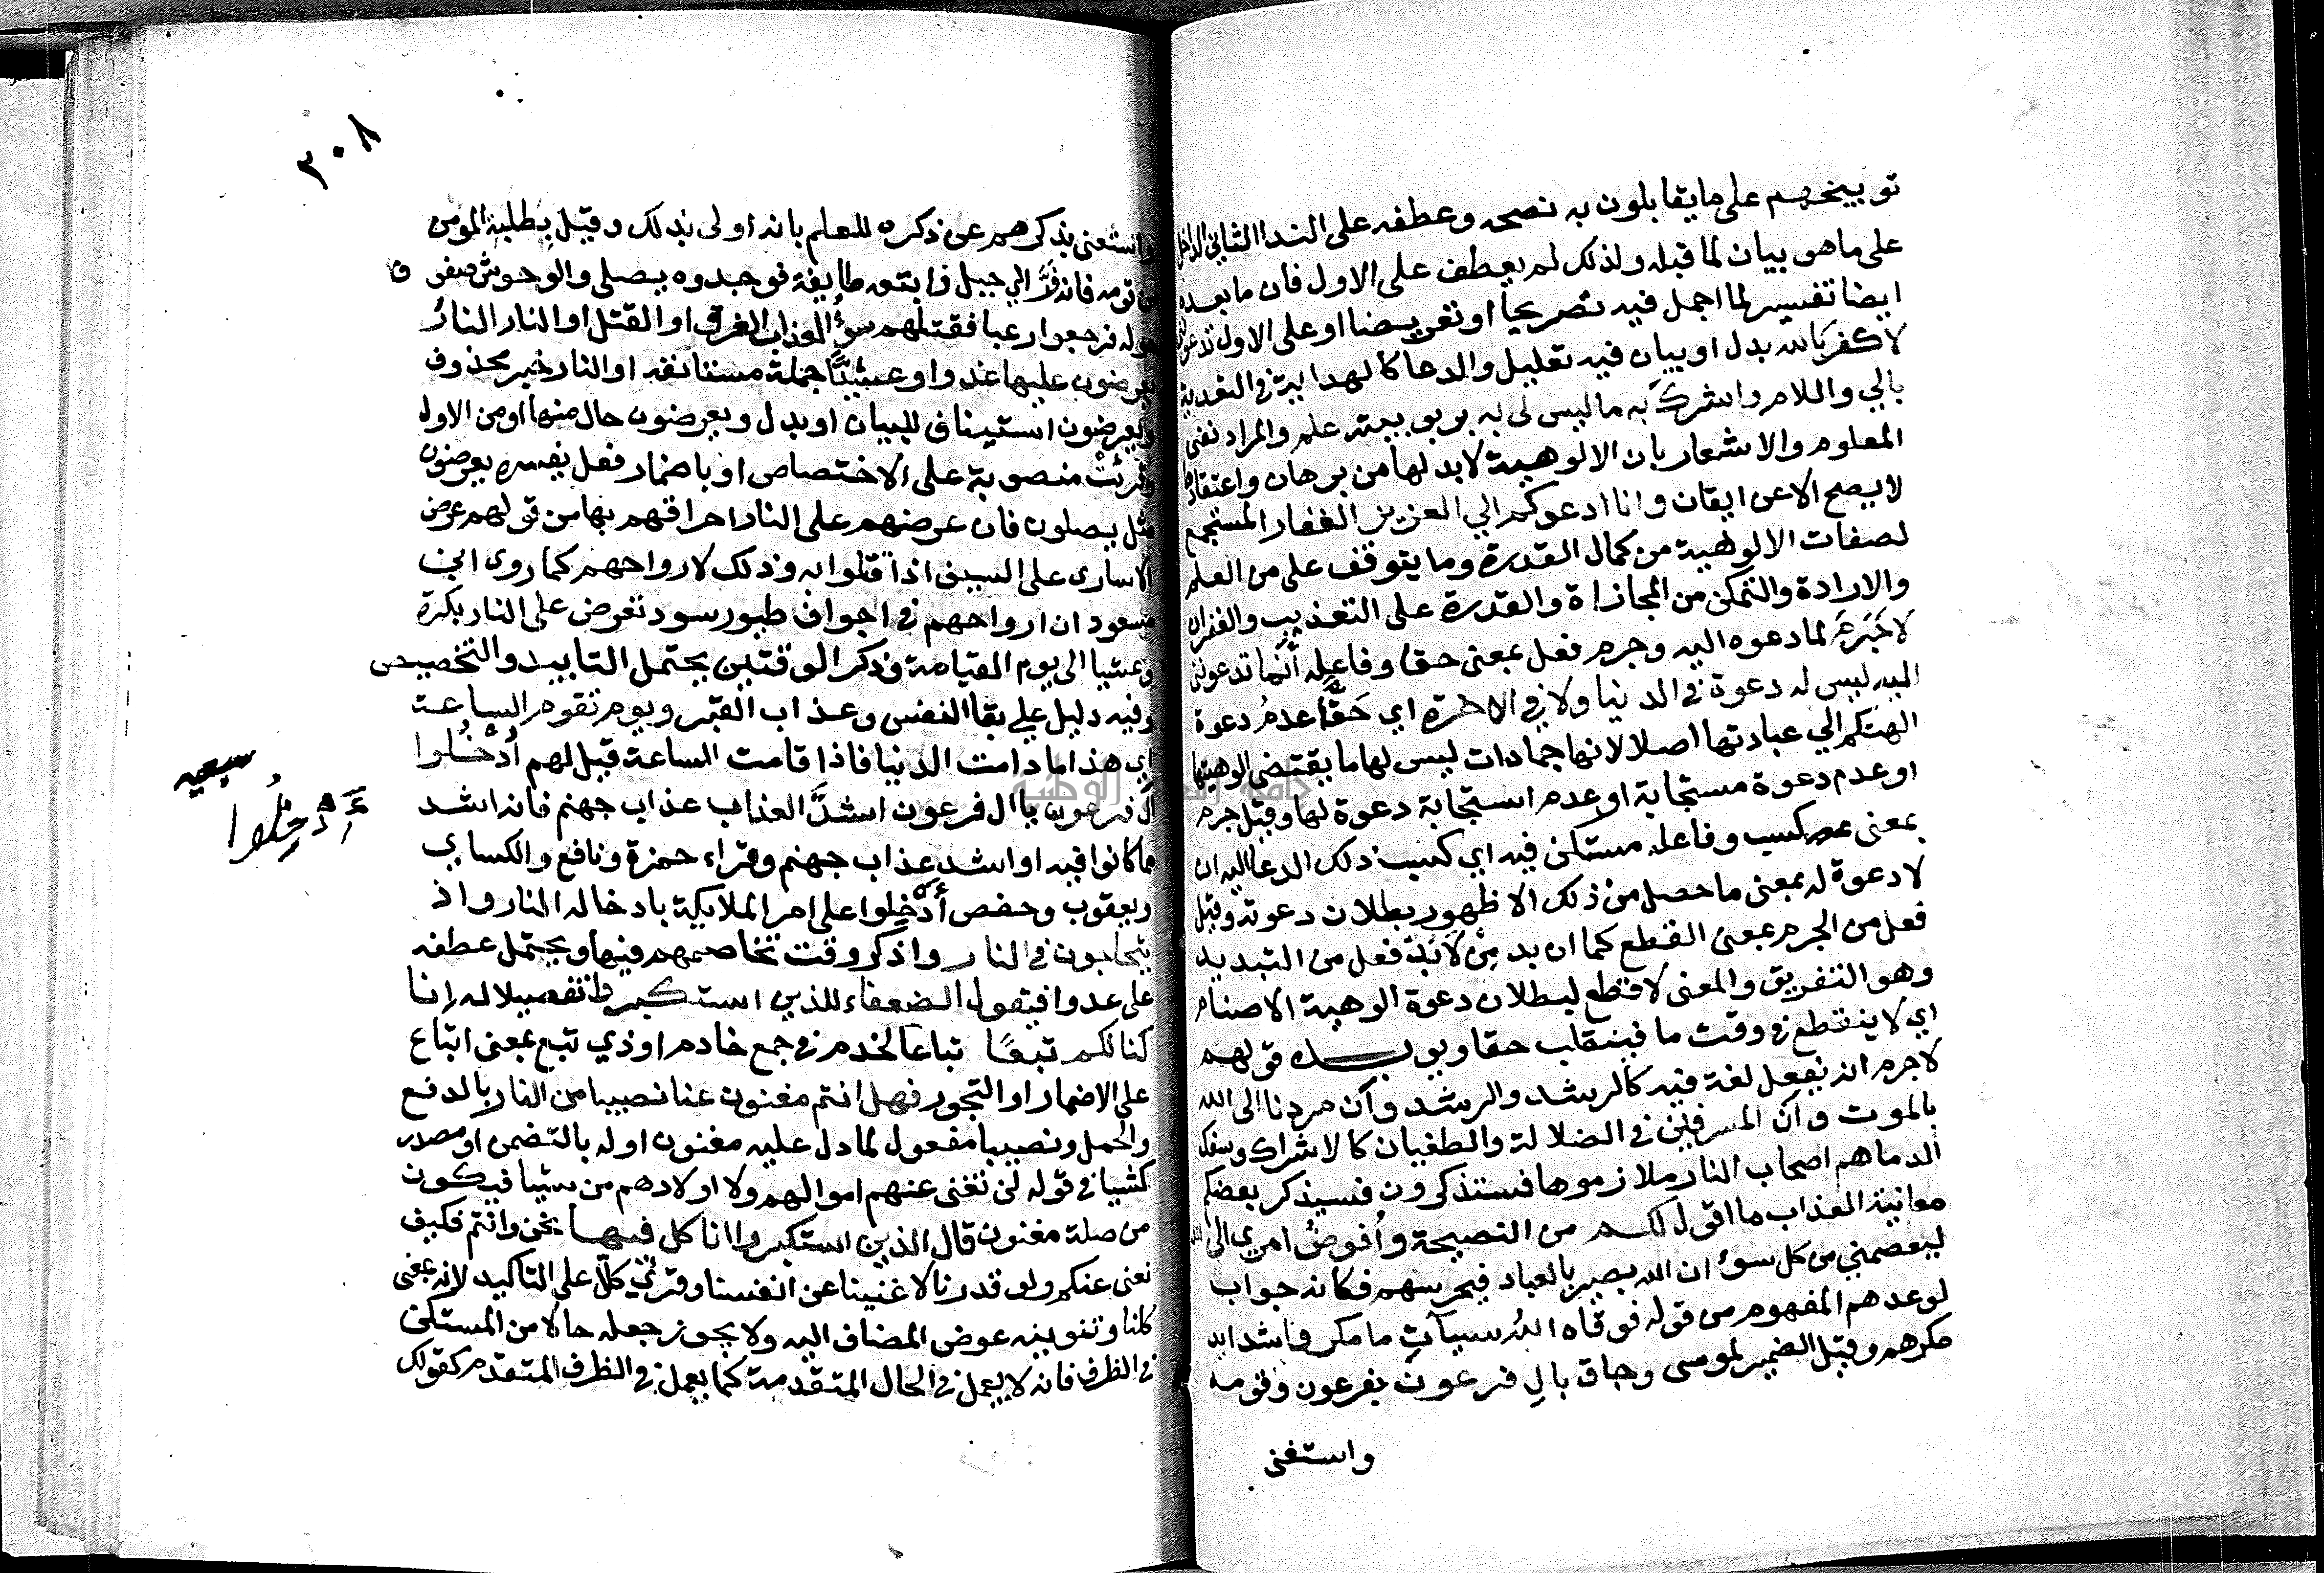 توبيخهم على ما يقابلون به نصحه وعطفه على الندا الثاني الداخل
على ما هو بيان لما قبله ولذلك لم يعطف على الاول فان ما بعده
ايضا تفسير لما اجمل فيه تصريحا او تعريضا او على الاول تدعونني
لاكفر بالله بدل او بيان فيه تعليل والدعا كالهداية في التعدية
بالي واللام واشرك به ما ليس لي به بربوبيته علم والمراد نفي
المعلوم والاشعار بان الالوهية لا بد لها من برهان واعتقادها
لا يصح الا عن ايقان وانا ادعوكم الي العزيز الغفار المستجمع
لصفات الالوهية من كمال القدرة وما يتوقف على من العلم
والارادة والتمكن من المجازاة والقدرة على التعذيب والغفران
لا جَرَمَ لما دعوه اليه وجرم فعل بمعنى حقا وفاعله أنّما تدعونني
اليه ليس له دعوة في الدنيا ولا في الاخرة اي حَقّا عدمُ دعوة
الهتكم الي عبادتها اصلا لانها جمادات ليس لها ما يقتضى الوهيتها
او عدم دعوة مستجابة او عدم استجابة دعوة لها وقيل جرم
بمعنى كسب وفاعله مستكن فيه اي كسب ذلك الدعا اليه ان
لا دعوة له بمعنى ما حصل من ذلك الا ظهور بطلان دعوته وقيل
فعل من الجرم بمعنى القطع كما ان بد مِنْ لَا بُدّ فعل من التبديد
وهو التفريق والمعنى لا قطع لبطلان دعوة الوهية الاصنام
اي لا ينقطع في وقت ما فينقلب حقا ويويده قولهم
لا جرم انه بفعل لغة فيه كالرشد والرشد وأن مردنا الى الله
بالموت وأن المسرفين في الضلالة والطغيان كالاشراك وسفك
الدما هم اصحاب النار ملازموها فستذكرون فسيذكر بعضكم
معاينة العذاب ما اقول لكم من النصيحة وأُفوضُ امري الى الله
ليعصمني من كل سوء ان الله بصير بالعباد فيحرسهم فكانه جواب
لوعدهم المفهوم من قوله فوقاه اللهُ سيئآتِ ما مكروا شدايد
مكرهم وقيل الضمير لموسى وحاق بالِ فرعون بفرعون وقومه
واستغنى
٣٠٨
واستغنى بذكرهم عن ذكره للعلم بانه اولى بذلك وقيل بطلبة المومن
من قومه فانه فرَّ الي جبل فاتبعه طايفة فوجدوه يصلي والوحوش صفوف
حوله فرجعوا رعبا فقتلهم سوءُ العذاب الغرق او القتل او النار النارُ
يعرضون عليها غدوا وعشيًّا جملة مستانفه او النار خبر محذوف
ويعرضون استيناف للبيان او بدل ويعرضون حال منها او من الاول
وقرئتْ منصوبة على الاختصاص او باضمار فعل يفسره يعرضون
مثل يصلون فان عرضهم على النار احراقهم بها من قولهم عرض
الاسارى على السيف اذا قتلوا به وذلك لارواحهم كما روى ابن
مسعود ان ارواحهم في اجواف طيور سود تعرض على النار بكرة
وعشيا الى يوم القيامة وذكر الوقتين يحتمل التابيد والتخصيص
وفيه دليل علي بقا النفس وعذاب القبر ويوم تقوم الساعة
اي هذا ما دامت الدنيا فاذا قامت الساعة قيل لهم أُدْخُلوا
آل فرعون يا ال فرعون اشدَّ العذاب عذاب جهنم فانه اشد
مما كانوا فيه او اشد عذاب جهنم وقراء حمزة ونافع والكساي
ويعقوب وحفص أَدْخِلوا على امر الملايكة بادخاله النار واذ
يتحاجون في النار واذكر وقت تخاصمهم فيها ويحتمل عطفه
على غدوا فيقول الضعفاء للذين استكبروا تفصيلا له إنا
كنا لكم تبعًا تباعا كخدم في جمع خادم او ذي تبع بمعنى اتباع
على الاضمار او التجوز فهل انتم مغنون عنا نصيبا من النار بالدفع
والحمل ونصيبا مفعول لما دل عليه مغنون او له بالتضمن او مصدر
كشيا في قوله لن تغنى عنهم اموالهم ولا اولادهم من شيئا فيكون
من صلة مغنون قال الذين استكبروا انا كل فيها نحن وانتم فكيف
نغنى عنكم ولو قدرنا لاغنينا عن انفسنا وقرئ كلًّا على التاكيد لانه بمعنى
كلنا وتنوينه عوض المضاف اليه ولا يجوز جعله حالا من المستكن
في الظرف فانه لا يعمل في الحال المتقدمة كما يعمل في الظرف المتقدم كقولك
سبعيه
أَدْخِلُوا